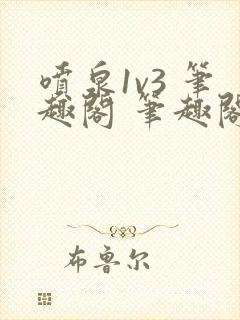 喷泉1v3 筆
趣閣 筆趣閣
布鲁尔